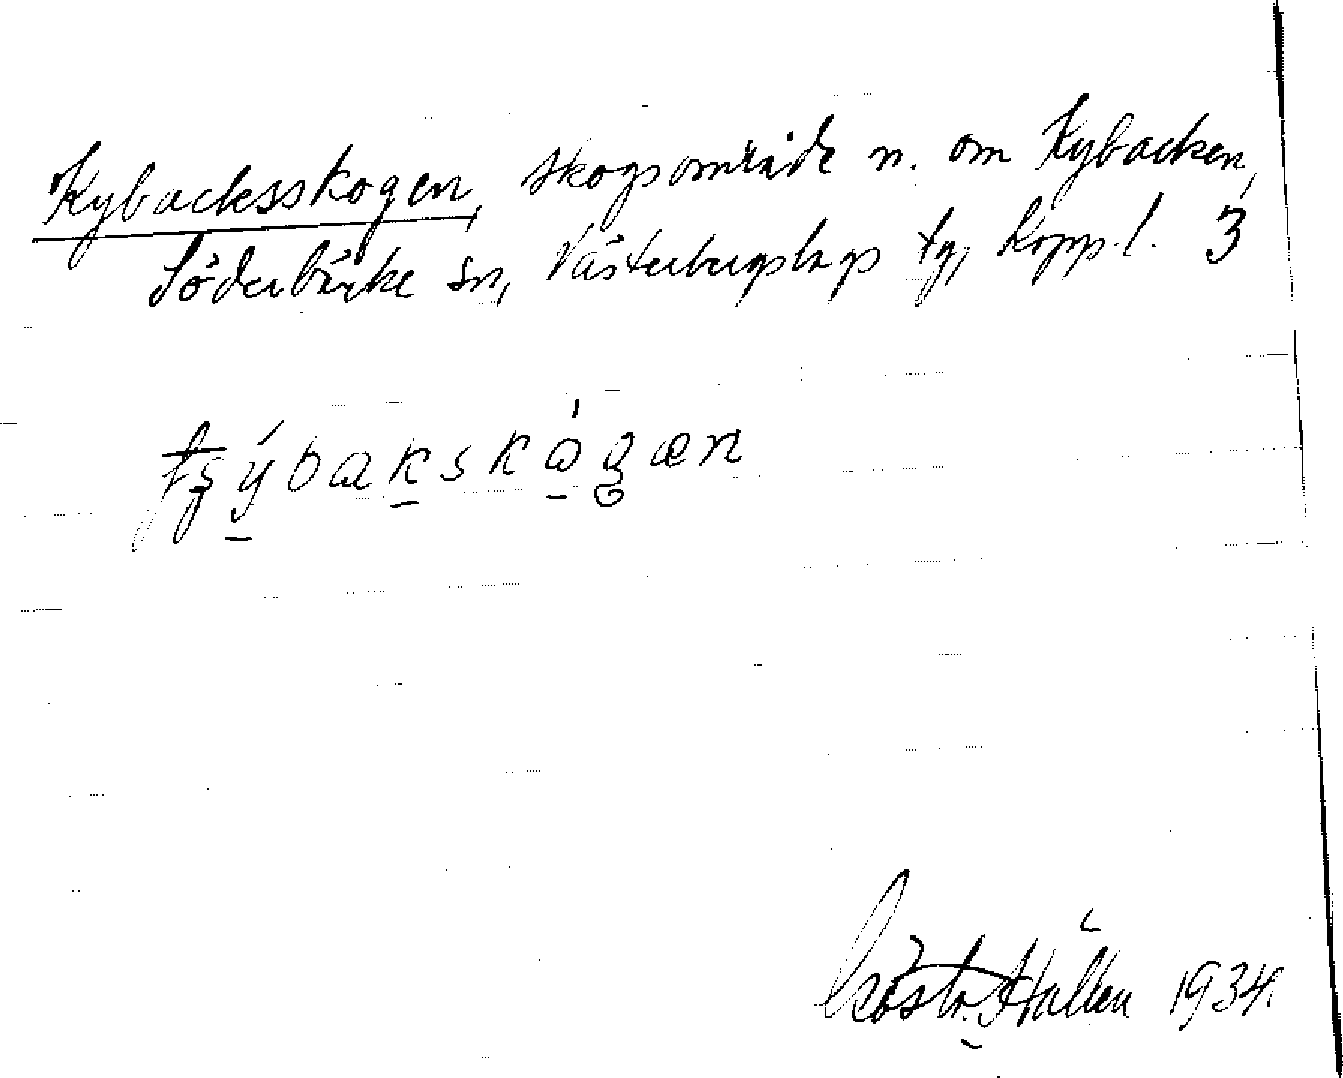 Kybacksskogen, skogsområde n. om Kybacken,
Söderbärke sn, Västerbergslags tg, Kopp. l. 3
Gösta Hallén 1934.